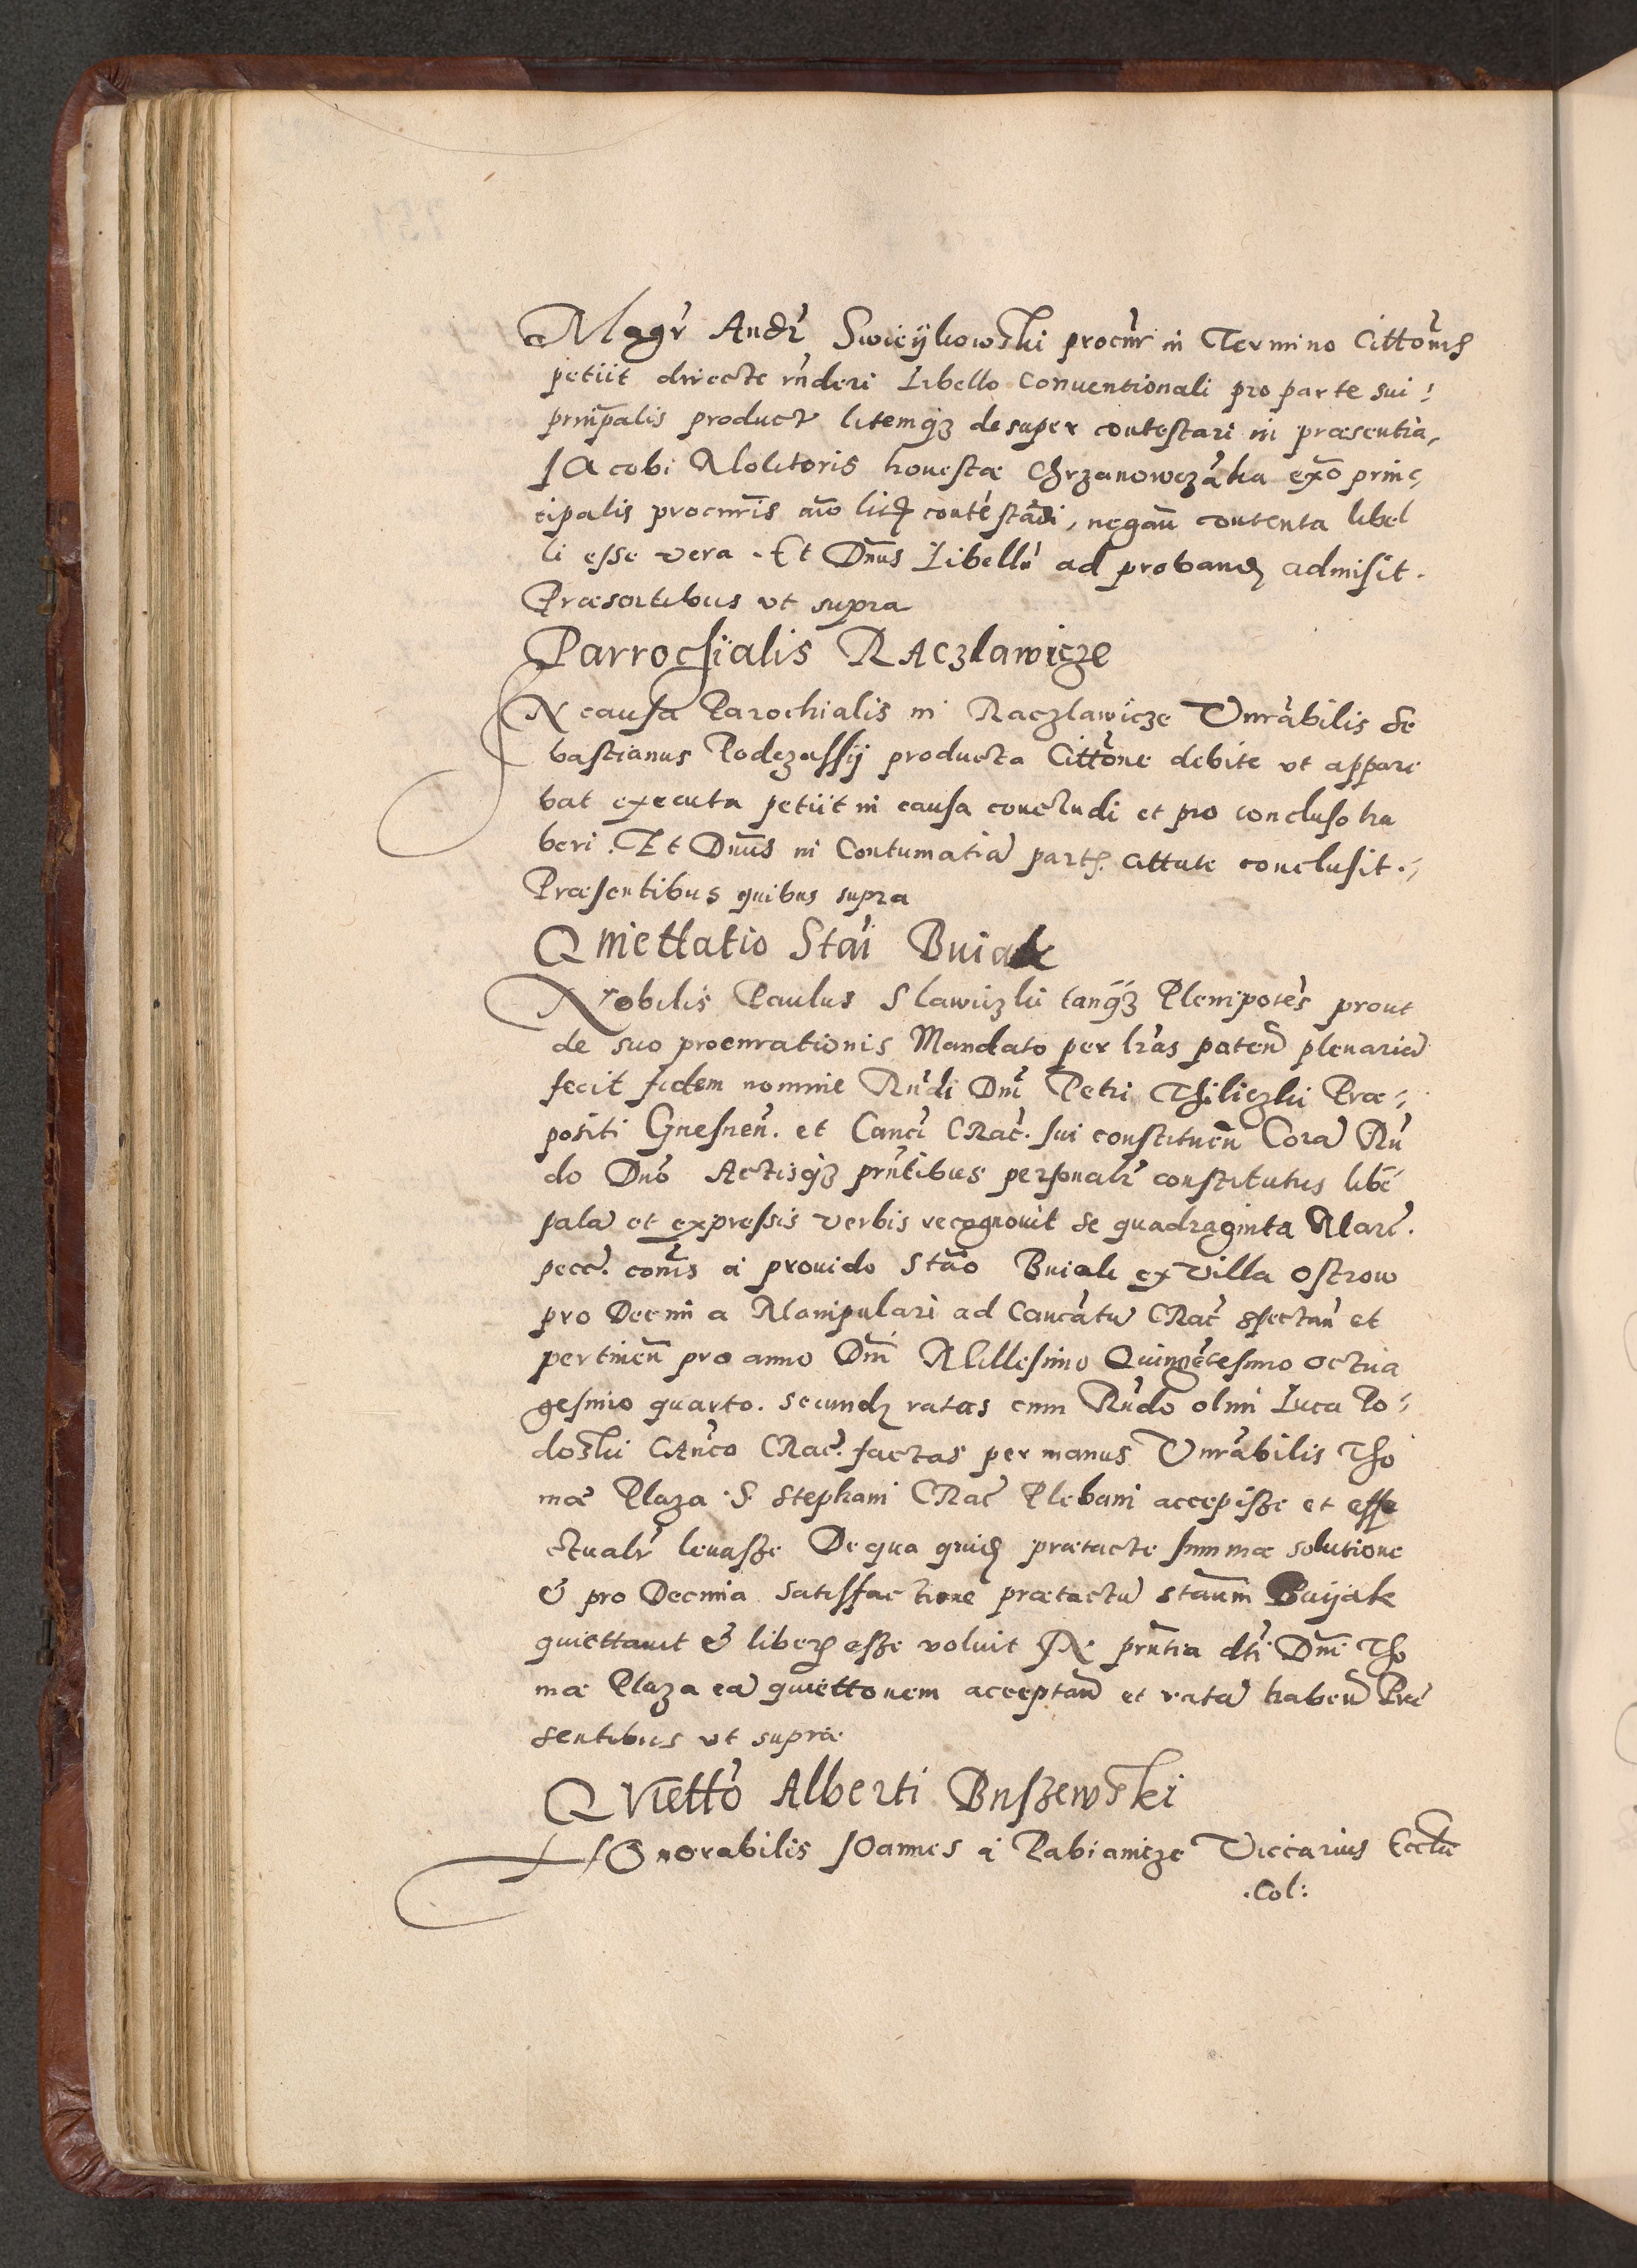 Magr Andr Swieykowski procur in Termino Cittōnis
petiit directe rnderi Libello Conventionali pro parte sui
prinpalis product litemqȝ desuper contestari in præsentia,
JAcobi Molitoris honestæ Chrzanowczāka ex̄o prin-
cipalis procuris aīo litē contestādi, negan̄ contenta libel
li esse vera. Et Dnus Libellū ad proband admisit.
Præsentibus vt supra
Parrochialis RAczlawicze
IN causa Parochialis in Raczlawicze Vnrabilis Se
bastianus Podczassij producta Cittōne debite vt appare
bat executa petiit in causa concludi et pro concluso ha
beri. Et Dnus in Contumatiā part. cittate conclusit.
Præsentibus quibus supra
Quiettatio Stai Buiak
Nobilis Paulus Slawiczki tanqȝ Plenipotēs prout
de suo procurationis Mandato per lras paten̄ plenariā
fecit fidem nomine Rndi Dni Petri Thiliczki Præ-
positi Gnesnen̄. et Canci CRac. sui constituen̄ Corā Rn
do Dno Actisqȝ prntibus personalr constitutus libē
palā et expressis verbis recognouit se quadraginta Marc.
pecc. comis a prouido Stao Buiak ex Villa Ostrow
pro Decima Manipulari ad Cancatū CRac spectan̄ et
pertinen̄ pro anno Dni Millesimo Quingētesimo octua
gesimo quarto. secund ratas cum Rndo olim Luca Po-
doski CAnco CRac. factas per manus Vnrabilis Tho
mæ Plaza S. Stephani CRac Plebani accepisse et effe
ctualr leuasse De qua quid prætactæ summæ solutione
& pro Decima satisfactione prætactū Staum Buijak
quiettauit & liber esse voluit IN prntia dti Dni Tho
mæ Plaza eā quiettonem acceptan̄ et ratā haben̄ Præ
sentibus vt supra
QVietto Alberti Buszewski
HOnorabilis JOannes a Pabianicze Viccarius Eccliæ
.Col: